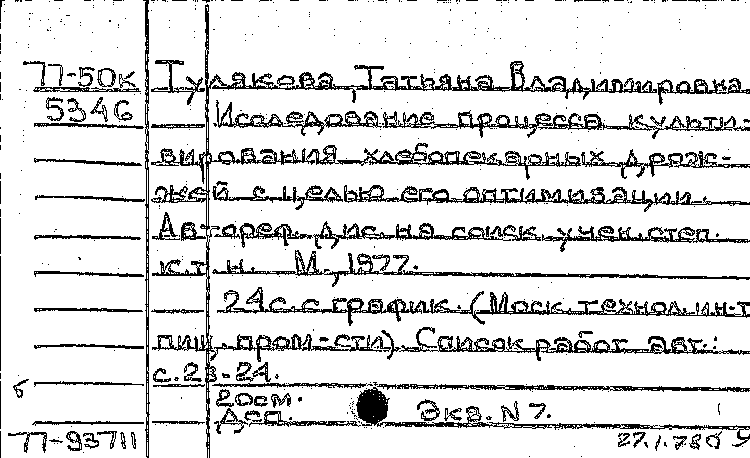 77-50к Тулякова, Татьяна Владимировна.
5346 Исследование процесса культи-
вирования хлебопекарных дрож-
жей с целью его оптимизации.
Автореф. дис. на соиск. учен. степ.
к.т.н. М., 1977.
24с. с график. (Моск. технол. ин-т
пищ. пром-сти). Список работ авт.:
с. 23-24.
б 20см.
Дсп. Экз. N 7.
77-93711 27.1.78